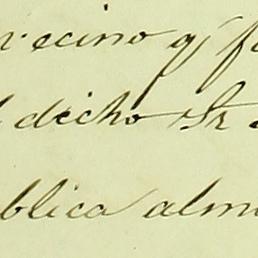 vecino q' f
dicho Sr
blica alm